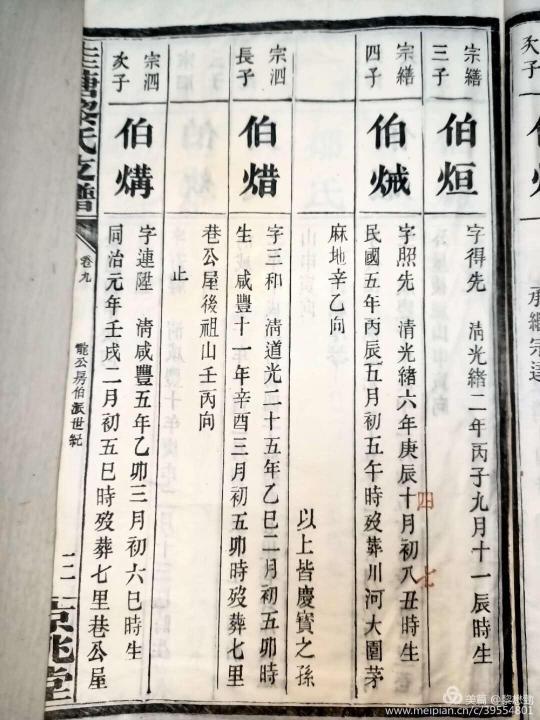 宗繕
三子
伯烜
字得先 清光緒二年丙子九月十一辰時生
宗繕
四子
伯煘
字照先 清光緒六年庚辰十月初八丑時生
四 七
民國五年丙辰五月初五午時歿葬川河大園茅
麻地辛乙向
以上皆慶寶之孫
宗泗
長子
伯熸
字三和 清道光二十五年乙巳二月初五卯時
生咸豐十一年辛酉三月初五卯時歿葬七里
巷公屋後祖山壬丙向
止
宗泗
次子
伯煹
字連陞 清咸豐五年乙卯三月初六巳時生
同治元年壬戌二月初五巳時歿葬七里巷公屋
黎氏支譜
卷九
龍公房伯派世紀
三
京兆堂
次子
承繼宗達
美篇 @黎懋勁
www.meipian.cn/c/39554801